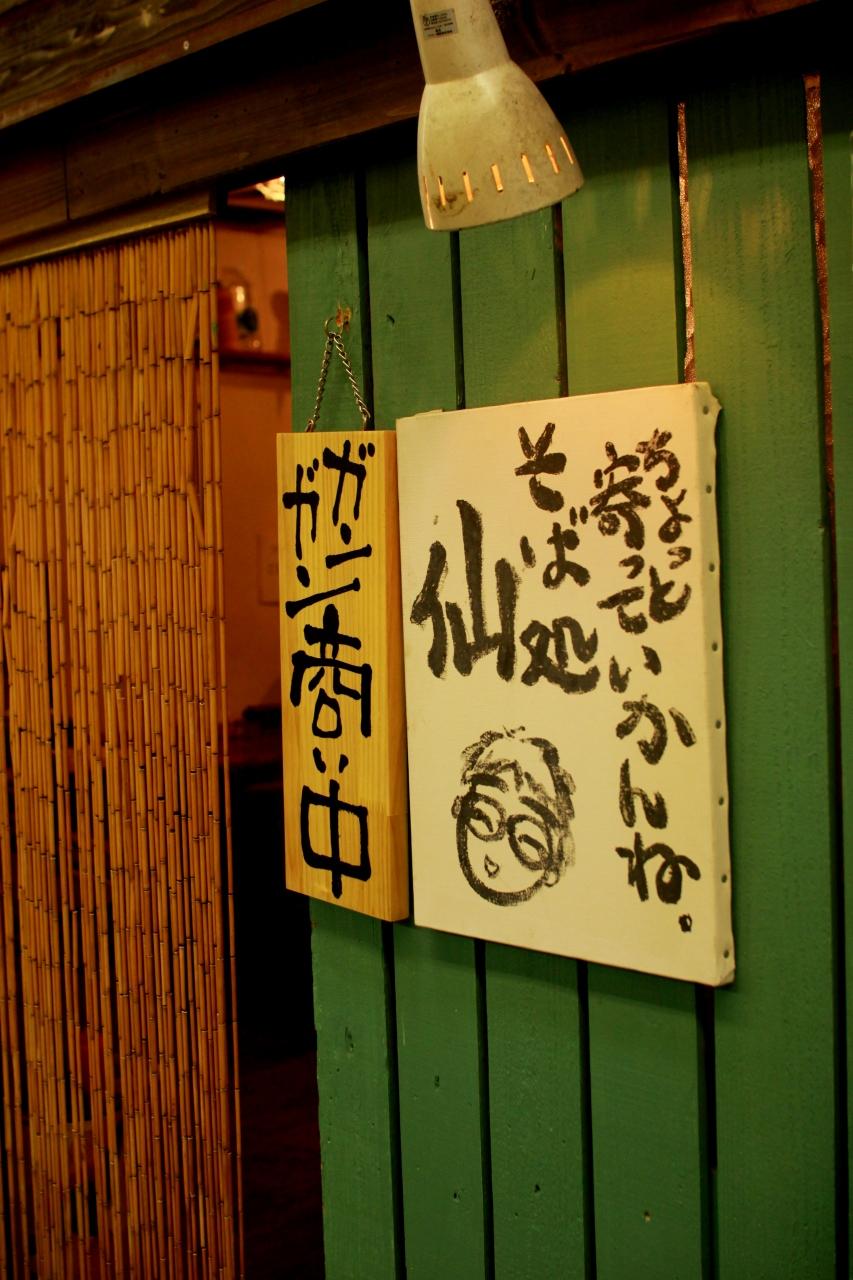 ちょっと
寄っていかんね.
そば処
仙
ガンガン商い中